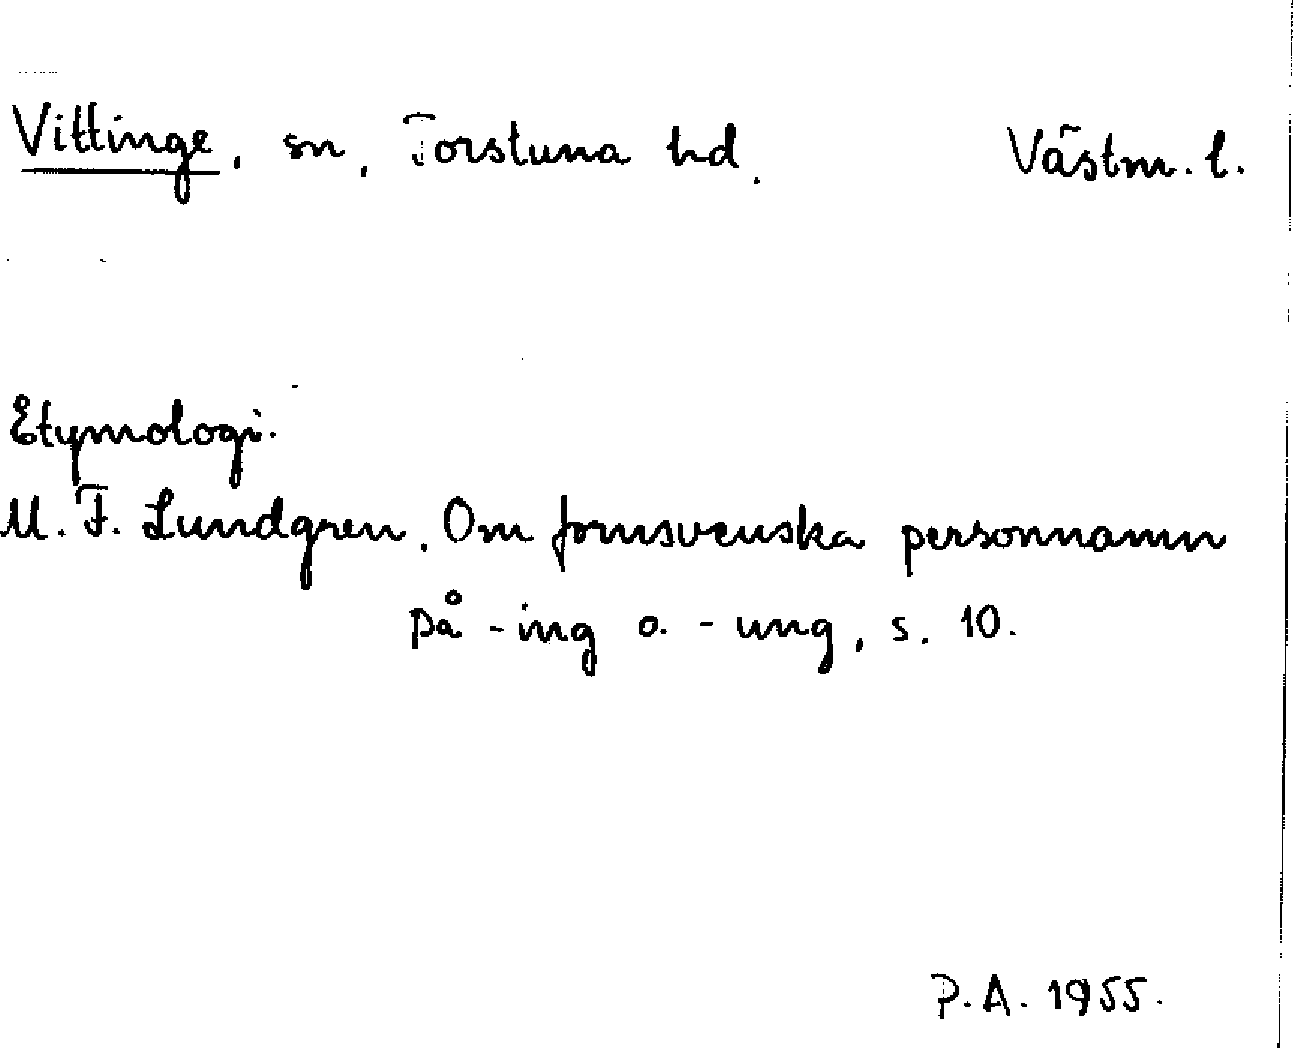 Vittinge, sn, Torstuna hd. Västm. l.
Etymologi.
M. F. Lundgren, Om fornsvenska personnamn
på -ing o. -ung, s. 10.
P.A. 1955.